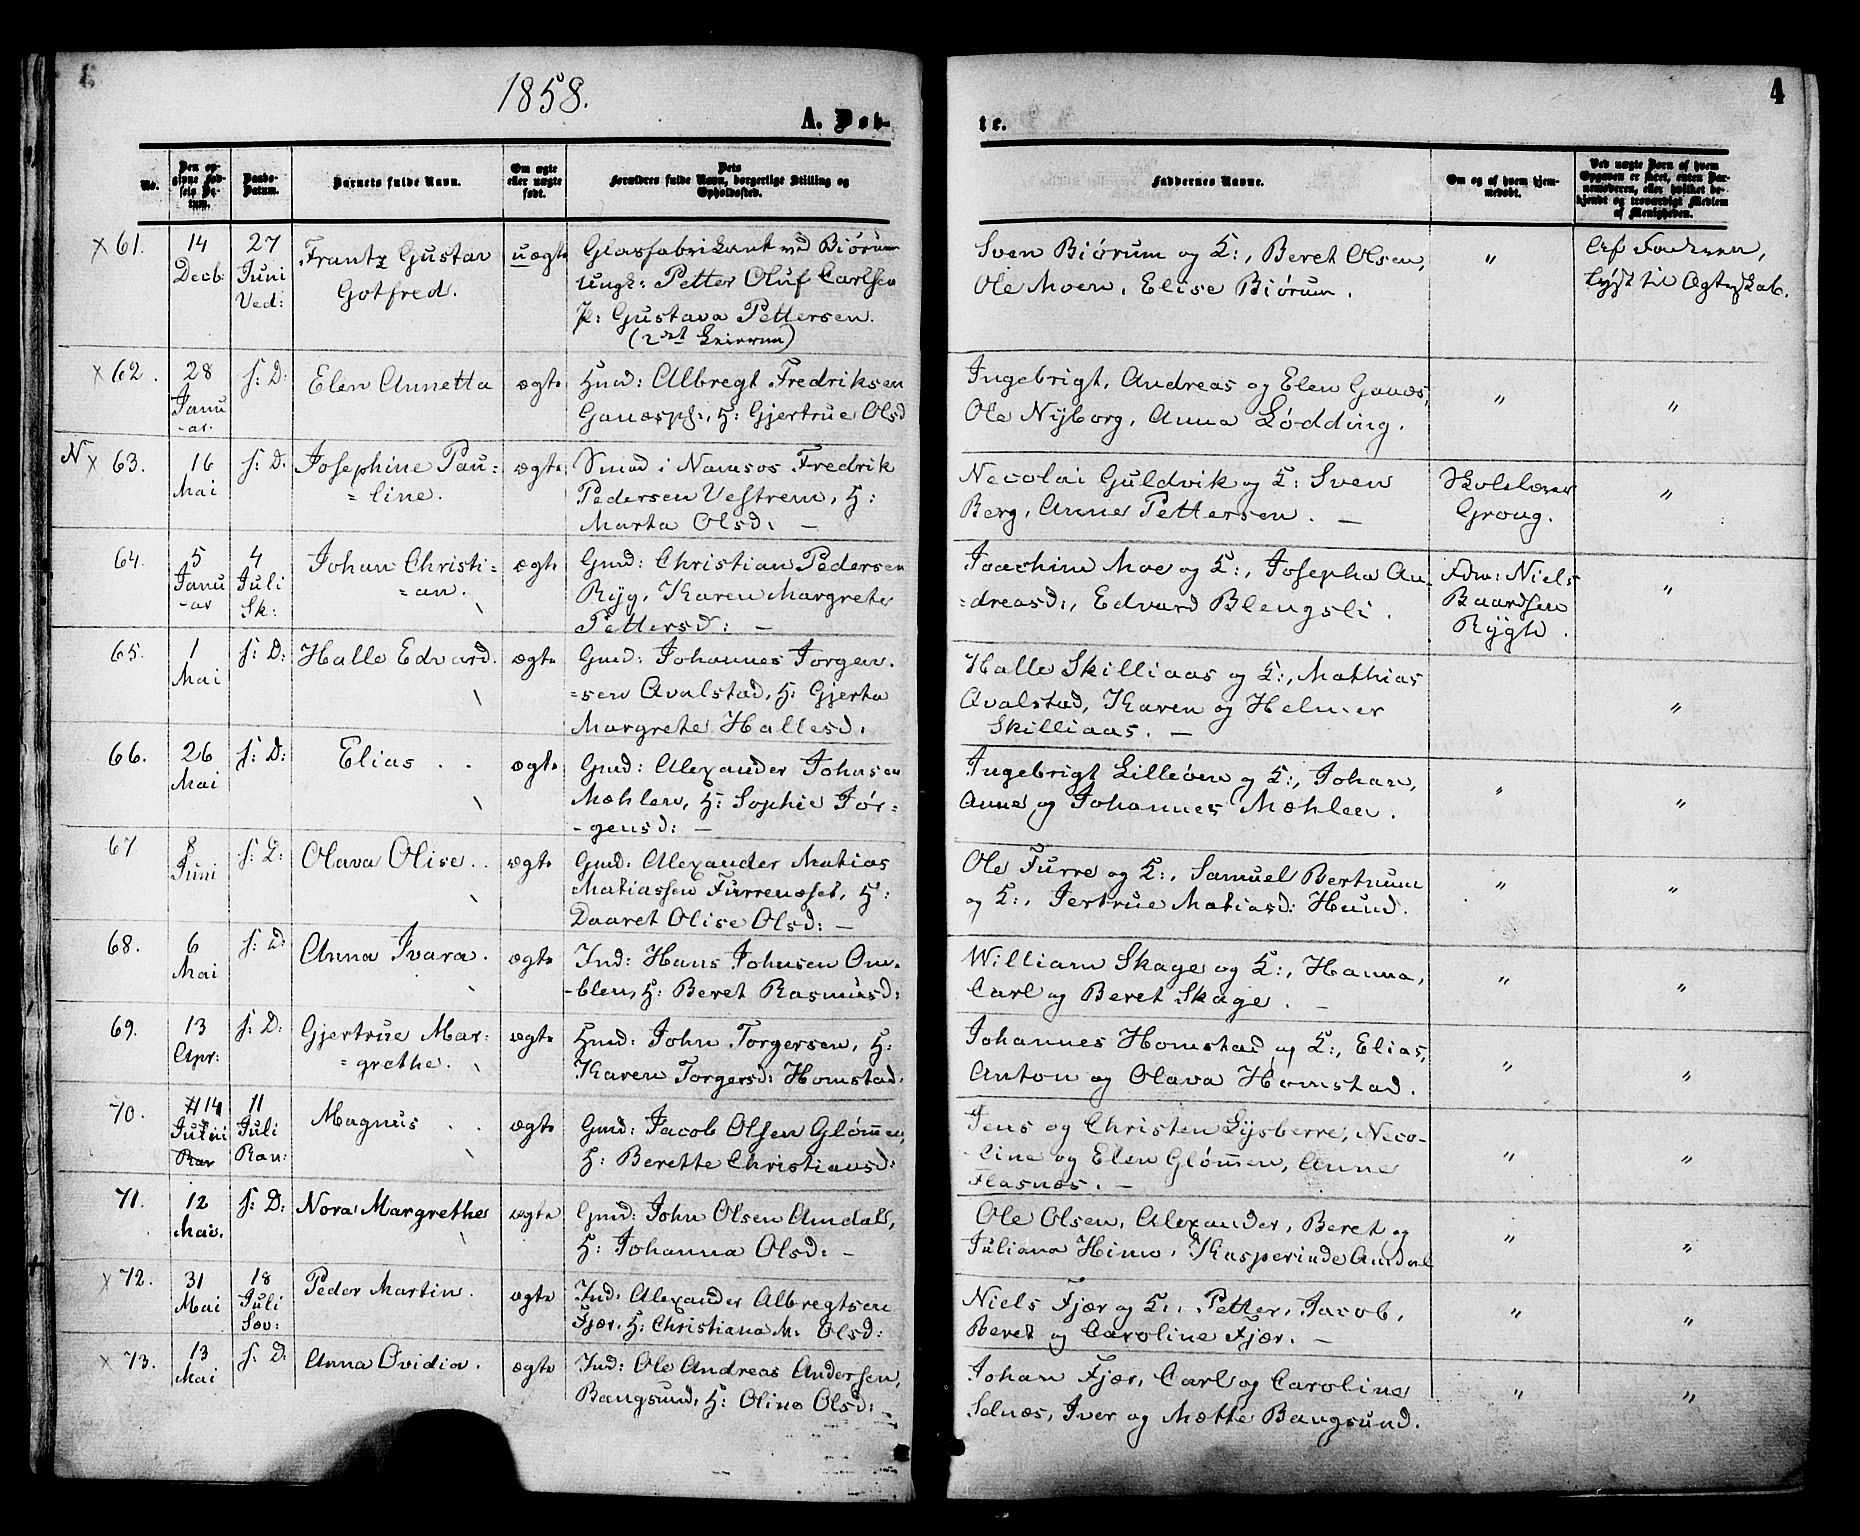 1858.
4
A. Døb-
te.
No.
Den op-
givne Fød-
sels Da-
tum.
Daabs-
Datum.
Barnets fulde Navn.
Om ægte
eller uægte
født.
Dets
Forældres fulde Navn, borgerlige Stilling og
Opholdssted.
Faddernes Navne.
Om og af hvem hjem-
medøbt.
Ved uægte Børn af hvem
Opgaven er skeet, enten Bar-
nemoderen, eller hvilket be-
kjendt og troværdigt Medlem
af Menigheden.
x 61.
14
Decb
27
Juni
Ved:
Frantz Gustav
Gotfred.
uægte
Glasfabrikant ved Biørum
Ungk: Petter Oluf Carlsen
P: Gustava Pettersen.
(2det Leierm)
Sven Biørum og K:, Beret Olsen,
Ole Moen, Elise Biørum.
"
Af Faderen,
lyst til Ægteskab.
x 62.
28
Janu
-ar.
s: D:
Elen Annetta
ægte
Huusmd: Albregt Fredriksen
Ganæspl:, H: Gjertrue Olsd
Ingebrigt, Andreas og Elen Ganæs,
Ole Nyborg, Anna Lødding.
"
"
N x 63.
16
Mai
s: D.
Josephine Pau=
=line.
ægte
Smed i Namsos Fredrik
Pedersen Vestrem, H:
Marta Olsd: —
Necolai Guldvik og K: Sven
Berg, Anne Pettersen. —
Skolelærer
Grong.
"
64.
5
Janu
-ar
4
Juli
Sk:
Johan Christi=
=an.
ægte
Gmd: Christian Pedersen
Ryg, Karen Margrete
Pettersd: —
Joachim Moe og K:, Josepha An-
=dreasd:, Edvard Blengsli.
Fdm: Niels
Baardsen
Rygh.
"
65.
1
Mai
s: D:
Halle Edvard.
ægte
Gmd: Johannes Jørgen.
=sen Avalstad, H: Gjerta
Margrete Hallesd:
Halle Skilliaas og K:, Mathias
Avalstad, Karen og Helmer
Skilliaas. —
"
66.
26
Mai
s: D:
Elias . .
ægte
Gmd: Alexander Johnsen
Mæhlen, H: Sophie Jør-
-gensd: —
Ingebrigt Lilleøen og K:, Johan,
Anne og Johannes Mæhlen.
"
"
67
8
Juni
s: D:
Olava Olise . .
ægte
Gmd: Alexander Matias
Matiassen Furrenæset, H:
Daaret Olise Olsd: —
Ole Furre og K:, Samuel Bertnum
og K:, Jertrue Matiasd: Hund.
"
"
68.
6
Mai
s: D:
Anna Ivara.
ægte
Ind: Hans Johnsen Om-
-blen, H: Beret Rasmusd:
William Skage og K:, Hanna,
Carl og Beret Skage. —
"
"
69.
13
Apr:
s: D:
Gjertrue Mar=
=grethe.
ægte
Huusmd: John Torgersen, H:
Karen Torgersd: Homstad.
Johannes Homstad og K:, Elias,
Anton og Olava Homstad.
"
"
70.
14
Juni
Ran
11
Juli
Ran:
Magnus . .
ægte
Gmd: Jacob Olsen Glømmen,
H: Berette Christiansd:
Jens og Christen Lysberre, Neco-
-line og Elen Glømmen, Anne
Flasnæs. —
"
"
71.
12
Mai.
s: D:
Nora Margrethe
ægte
Gmd: John Olsen Amdal,
H: Johanna Olsd: —
Ole Olsen, Alexander, Beret og
Juliana Himo, Kasperinde Amdal
"
"
x 72.
31
Mai
18
Juli
Sæv:
Peder Martin.
ægte
Ind: Alexander Albregtsen
Fjær, H: Christiana M. Olsd:
Niels Fjær og K:, Petter, Jacob,
Beret og Caroline Fjær. —
"
"
x 73.
13
Mai
s: D:
Anna Ovidia.
ægte
Ind: Ole Andreas Andersen,
Bangsund, H: Oline Olsd: —
Johan Fjær, Carl og Caroline
Selnæs, Iver og Mætte Bangsund.
"
"